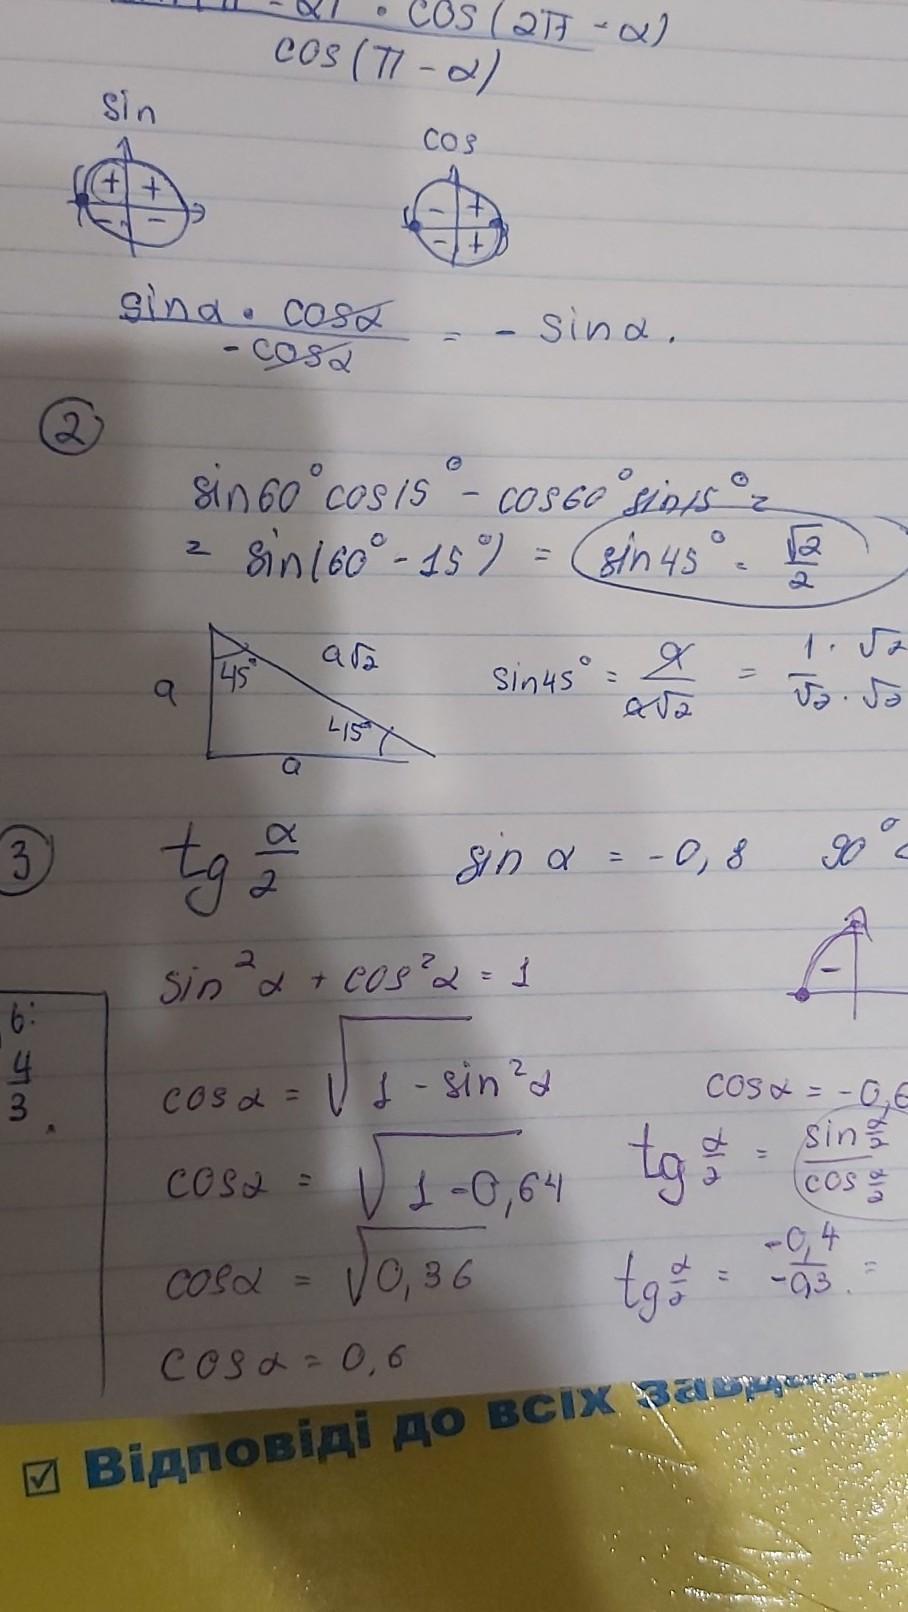 - α) · cos(2π - α)
cos(π - α)
sin
cos
+ +
- -
- +
- +
sinα · cosα
-cosα
= - sinα.
2
sin60° cos15° - cos60° sin15° =
= sin(60° - 15°) = sin45° = √2/2
a
45°
a√2
45°
a
sin45° = a/a√2 = 1 · √2/√2 · √2
3
tg α/2
sin α = -0,8
90° <
sin²α + cos²α = 1
-
6:
4/3.
cosα = √1 - sin²α
cosα = -0,6
cosα = √1-0,64
tg α/2 = sin α/2 / cos α/2
cosα = √0,36
tg α/2 = -0,4/-0,3 =
cosα = 0,6
Відповіді до всіх